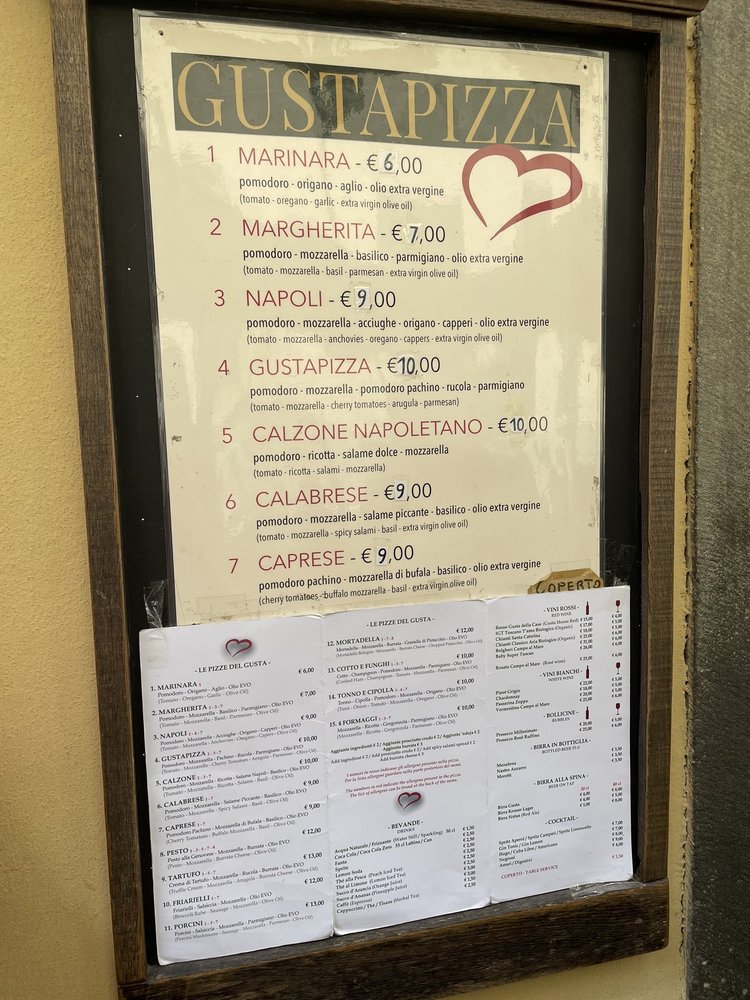 GUSTAPIZZA
1 MARINARA - € 6,00
pomodoro - origano - aglio - olio extra vergine
(tomato - oregano - garlic - extra virgin olive oil)
2 MARGHERITA - € 7,00
pomodoro - mozzarella - basilico - parmigiano - olio extra vergine
(tomato - mozzarella - basil - parmesan - extra virgin olive oil)
3 NAPOLI - € 9,00
pomodoro - mozzarella - acciughe - origano - capperi - olio extra vergine
(tomato - mozzarella - anchovies - oregano - cappers - extra virgin olive oil)
4 GUSTAPIZZA - €10,00
pomodoro - mozzarella - pomodoro pachino - rucola - parmigiano
(tomato - mozzarella - cherry tomatoes - arugula - parmesan)
5 CALZONE NAPOLETANO - €10,00
pomodoro - ricotta - salame dolce - mozzarella
(tomato - ricotta - salami - mozzarella)
6 CALABRESE - €9,00
pomodoro - mozzarella - salame piccante - basilico - olio extra vergine
(tomato - mozzarella - spicy salami - basil - extra virgin olive oil)
7 CAPRESE - € 9,00
pomodoro pachino - mozzarella di bufala - basilico - olio extra vergine
(cherry tomatoes - buffalo mozzarella - basil - extra virgin olive oil)
COPERTO
- LE PIZZE DEL GUSTA -
1. MARINARA 1 € 6,00
Pomodoro - Origano - Aglio - Olio EVO
(Tomato - Oregano - Garlic - Olive Oil)
2. MARGHERITA 1 - 7 € 7,00
Pomodoro - Mozzarella - Basilico - Parmigiano - Olio EVO
(Tomato - Mozzarella - Basil - Parmesan - Olive Oil)
3. NAPOLI € 9,00
Pomodoro - Mozzarella - Acciughe - Origano - Capperi - Olio EVO
(Tomato - Mozzarella - Anchovies - Oregano - Cappers - Olive Oil)
4. GUSTAPIZZA € 10,00
Pomodoro - Mozzarella - Pachino - Rucola - Parmigiano - Olio EVO
(Tomato - Mozzarella - Cherry Tomatoes - Arugula - Parmesan - Olive Oil)
5. CALZONE € 10,00
Pomodoro - Mozzarella - Ricotta - Salame Napoli - Basilico - Olio EVO
(Tomato - Mozzarella - Ricotta - Salami - Basil - Olive Oil)
6. CALABRESE € 9,00
Pomodoro - Mozzarella - Salame Piccante - Basilico - Olio EVO
(Tomato - Mozzarella - Spicy Salami - Basil - Olive Oil)
7. CAPRESE 1 - 7 € 9,00
Pomodoro Pachino - Mozzarella di Bufala - Basilico - Olio EVO
(Cherry Tomatoes - Buffalo Mozzarella - Basil - Olive Oil)
8. PESTO € 12,00
Pesto alla Genovese - Mozzarella - Burrata - Olio EVO
(Pesto - Mozzarella - Burrata Cheese - Olive Oil)
9. TARTUFO € 13,00
Crema di Tartufo - Mozzarella - Rucola - Burrata - Olio EVO
(Truffle Cream - Mozzarella - Arugula - Burrata Cheese - Olive Oil)
10. FRIARIELLI € 12,00
Friarielli - Salsiccia - Mozzarella - Olio EVO
(Broccoli Rabe - Sausage - Mozzarella - Olive Oil)
11. PORCINI € 13,00
Porcini - Salsiccia - Mozzarella - Parmigiano - Olio EVO
(Porcini Mushrooms - Sausage - Mozzarella - Parmesan - Olive Oil)
- LE PIZZE DEL GUSTA -
12. MORTADELLA € 12,00
Mortadella - Mozzarella - Burrata - Granella di Pistacchio - Olio EVO
(Mortadella Bologna - Mozzarella - Burrata Cheese - Chopped Pistachio - Olive Oil)
13. COTTO E FUNGHI € 10,00
Cotto - Champignon - Pomodoro - Mozzarella - Parmigiano - Olio EVO
(Cooked Ham - Champignon - Tomato - Mozzarella - Parmesan - Olive Oil)
14. TONNO E CIPOLLA € 10,00
Tonno - Cipolla - Pomodoro - Mozzarella - Origano - Olio EVO
(Tuna - Onion - Tomato - Mozzarella - Oregano - Olive Oil)
15. 4 FORMAGGI € 10,00
Mozzarella - Ricotta - Gorgonzola - Parmigiano - Olio EVO
(Mozzarella - Ricotta - Gorgonzola - Parmesan - Olive Oil)
I numeri in rosso indicano gli allergeni presenti nella pizza.
Per la lista allergeni guardare nella parte posteriore del menù.
The numbers in red indicate the allergens present in the pizza.
The list of allergens can be found at the back of the menu.
- BEVANDE -
DRINKS
Acqua Naturale / Frizzante (Water Still / Sparkling) 50 cl € 1,50
Coca Cola / Coca Cola Zero 33 cl Lattina / Can € 2,50
Fanta
Sprite
Lemon Soda
The alla Pesca (Peach Iced Tea)
The al Limone (Lemon Iced Tea)
Succo d'Arancia (Orange Juice)
Succo d'Ananas (Pineapple Juice)
Caffè (Espresso)
Cappuccino / Thè / Tisane (Herbal Tea)
- VINI ROSSI -
RED WINE
Rosso Gusta della Casa (Gusta House Red)
Chianti Santa Caterina
Chianti Classico Aria Birichina (Organic)
Bolgheri Campo al Mare
Baby Super Tuscan
Rosato Campo al Mare (Rosé wine)
- VINI BIANCHI -
WHITE WINE
Pinot Grigio
Chardonnay
Passerina Zeppa
Vermentino Campo al Mare
- BOLLICINE -
BUBBLES
Prosecco Millesimato
Prosecco Rosé Ruffino
- BIRRA IN BOTTIGLIA -
BOTTLED BEER 33 cl
Menabrea
Nastro Azzurro
Moretti
- BIRRA ALLA SPINA -
BEER ON TAP
Birra Gusta
- COCKTAIL -
Spritz Aperol / Spritz Campari / Spritz Limoncello
Gin Tonic / Gin Lemon
Hugo / Cuba Libre / Americano
Negroni
Amari / Digestivi
COPERTO - TABLE SERVICE € 1,50